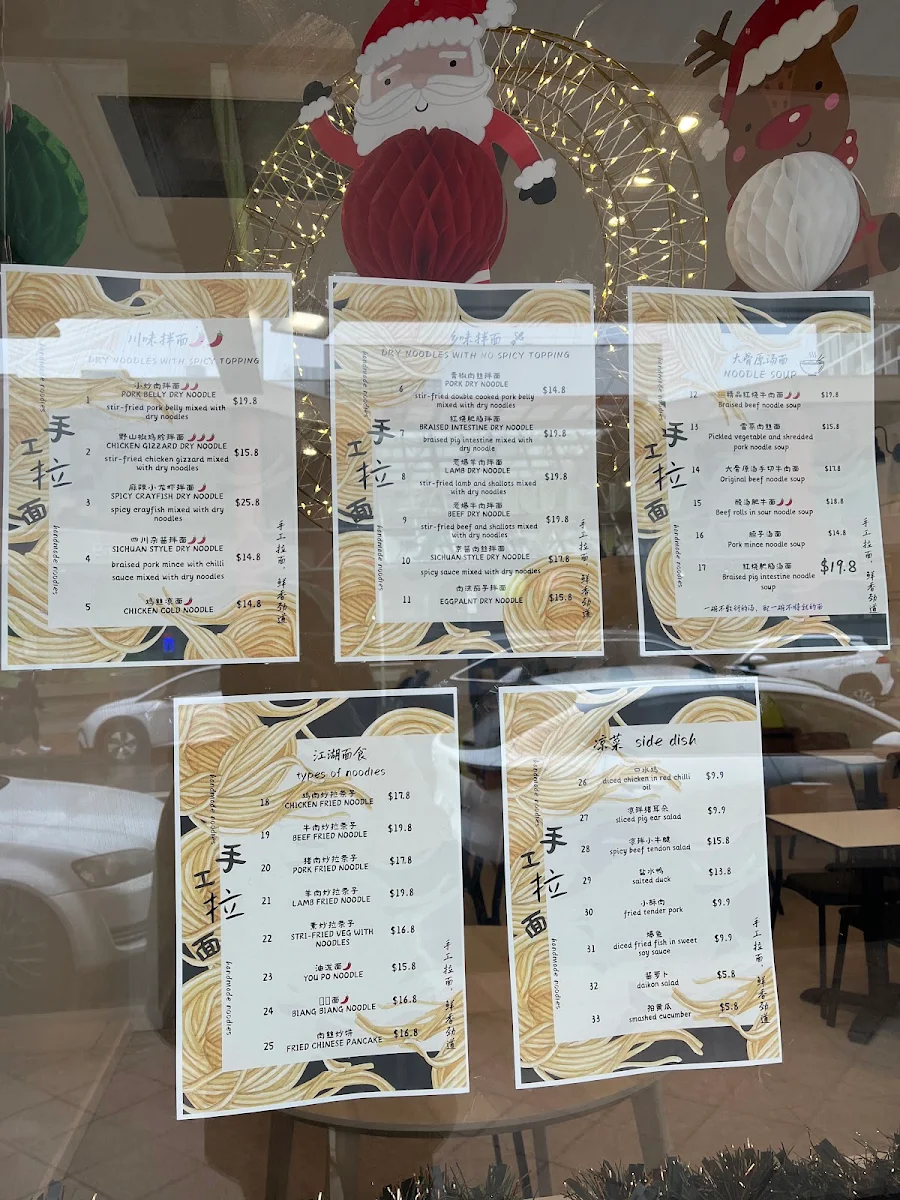 川味拌面
DRY NOODLES WITH SPICY TOPPING
handmade noodles
手工拉面
handmade noodles
手工拉面，鲜香劲道
1 小炒肉拌面
PORK BELLY DRY NOODLE $19.8
stir-fried pork belly mixed with
dry noodles
2 野山椒鸡胗拌面
CHICKEN GIZZARD DRY NOODLE $15.8
stir-fried chicken gizzard mixed
with dry noodles
3 麻辣小龙虾拌面
SPICY CRAYFISH DRY NOODLE $25.8
spicy crayfish mixed with dry
noodles
4 四川杂酱拌面
SICHUAN STYLE DRY NOODLE $14.8
braised pork mince with chilli
sauce mixed with dry noodles
5 鸡丝凉面
CHICKEN COLD NOODLE $14.8
乡味拌面
DRY NOODLES WITH NO SPICY TOPPING
handmade noodles
手工拉面
handmade noodles
手工拉面，鲜香劲道
6 青椒肉丝拌面
PORK DRY NOODLE $14.8
stir-fried double cooked pork belly
mixed with dry noodles
7 红烧肥肠拌面
BRAISED INTESTINE DRY NOODLE $19.8
braised pig intestine mixed with
dry noodle
8 葱爆羊肉拌面
LAMB DRY NOODLE $19.8
stir-fried lamb and shallots mixed
with dry noodles
9 葱爆牛肉拌面
BEEF DRY NOODLE $19.8
stir-fried beef and shallots mixed
with dry noodles
10 京酱肉丝拌面
SICHUAN STYLE DRY NOODLE $17.8
spicy sauce mixed with dry noodles
11 肉沫茄子拌面
EGGPALNT DRY NOODLE $15.8
大骨原汤面
NOODLE SOUP
handmade noodles
手工拉面
handmade noodles
手工拉面，鲜香劲道
12 精品红烧牛肉面 $19.8
Braised beef noodle soup
13 雪菜肉丝面 $15.8
Pickled vegetable and shredded
pork noodle soup
14 大骨原汤手切牛肉面 $17.8
Original beef noodle soup
15 酸汤肥牛面 $18.8
Beef rolls in sour noodle soup
16 臊子汤面 $14.8
Pork mince noodle soup
17 红烧肥肠汤面 $19.8
Braised pig intestine noodle
soup
江湖面食
types of noodles
handmade noodles
手工拉面
handmade noodles
手工拉面，鲜香劲道
18 鸡肉炒拉条子 $17.8
CHICKEN FRIED NOODLE
19 牛肉炒拉条子 $19.8
BEEF FRIED NOODLE
20 猪肉炒拉条子 $17.8
PORK FRIED NOODLE
21 羊肉炒拉条子 $19.8
LAMB FRIED NOODLE
22 素炒拉条子 $16.8
STRI-FRIED VEG WITH
NOODLES
23 油泼面 $15.8
YOU PO NOODLE
24 面 $16.8
BIANG BIANG NOODLE
25 肉丝炒饼 $16.8
FRIED CHINESE PANCAKE
凉菜 side dish
handmade noodles
手工拉面
handmade noodles
手工拉面，鲜香劲道
26 口水鸡 $9.9
diced chicken in red chilli
oil
27 凉拌猪耳朵 $9.9
sliced pig ear salad
28 凉拌小牛腱 $15.8
spicy beef tendon salad
29 盐水鸭 $13.8
salted duck
30 小酥肉 $9.9
fried tender pork
31 爆鱼 $9.9
diced fried fish in sweet
soy sauce
32 酱萝卜 $5.8
daikon salad
33 拍黄瓜 $5.8
smashed cucumber